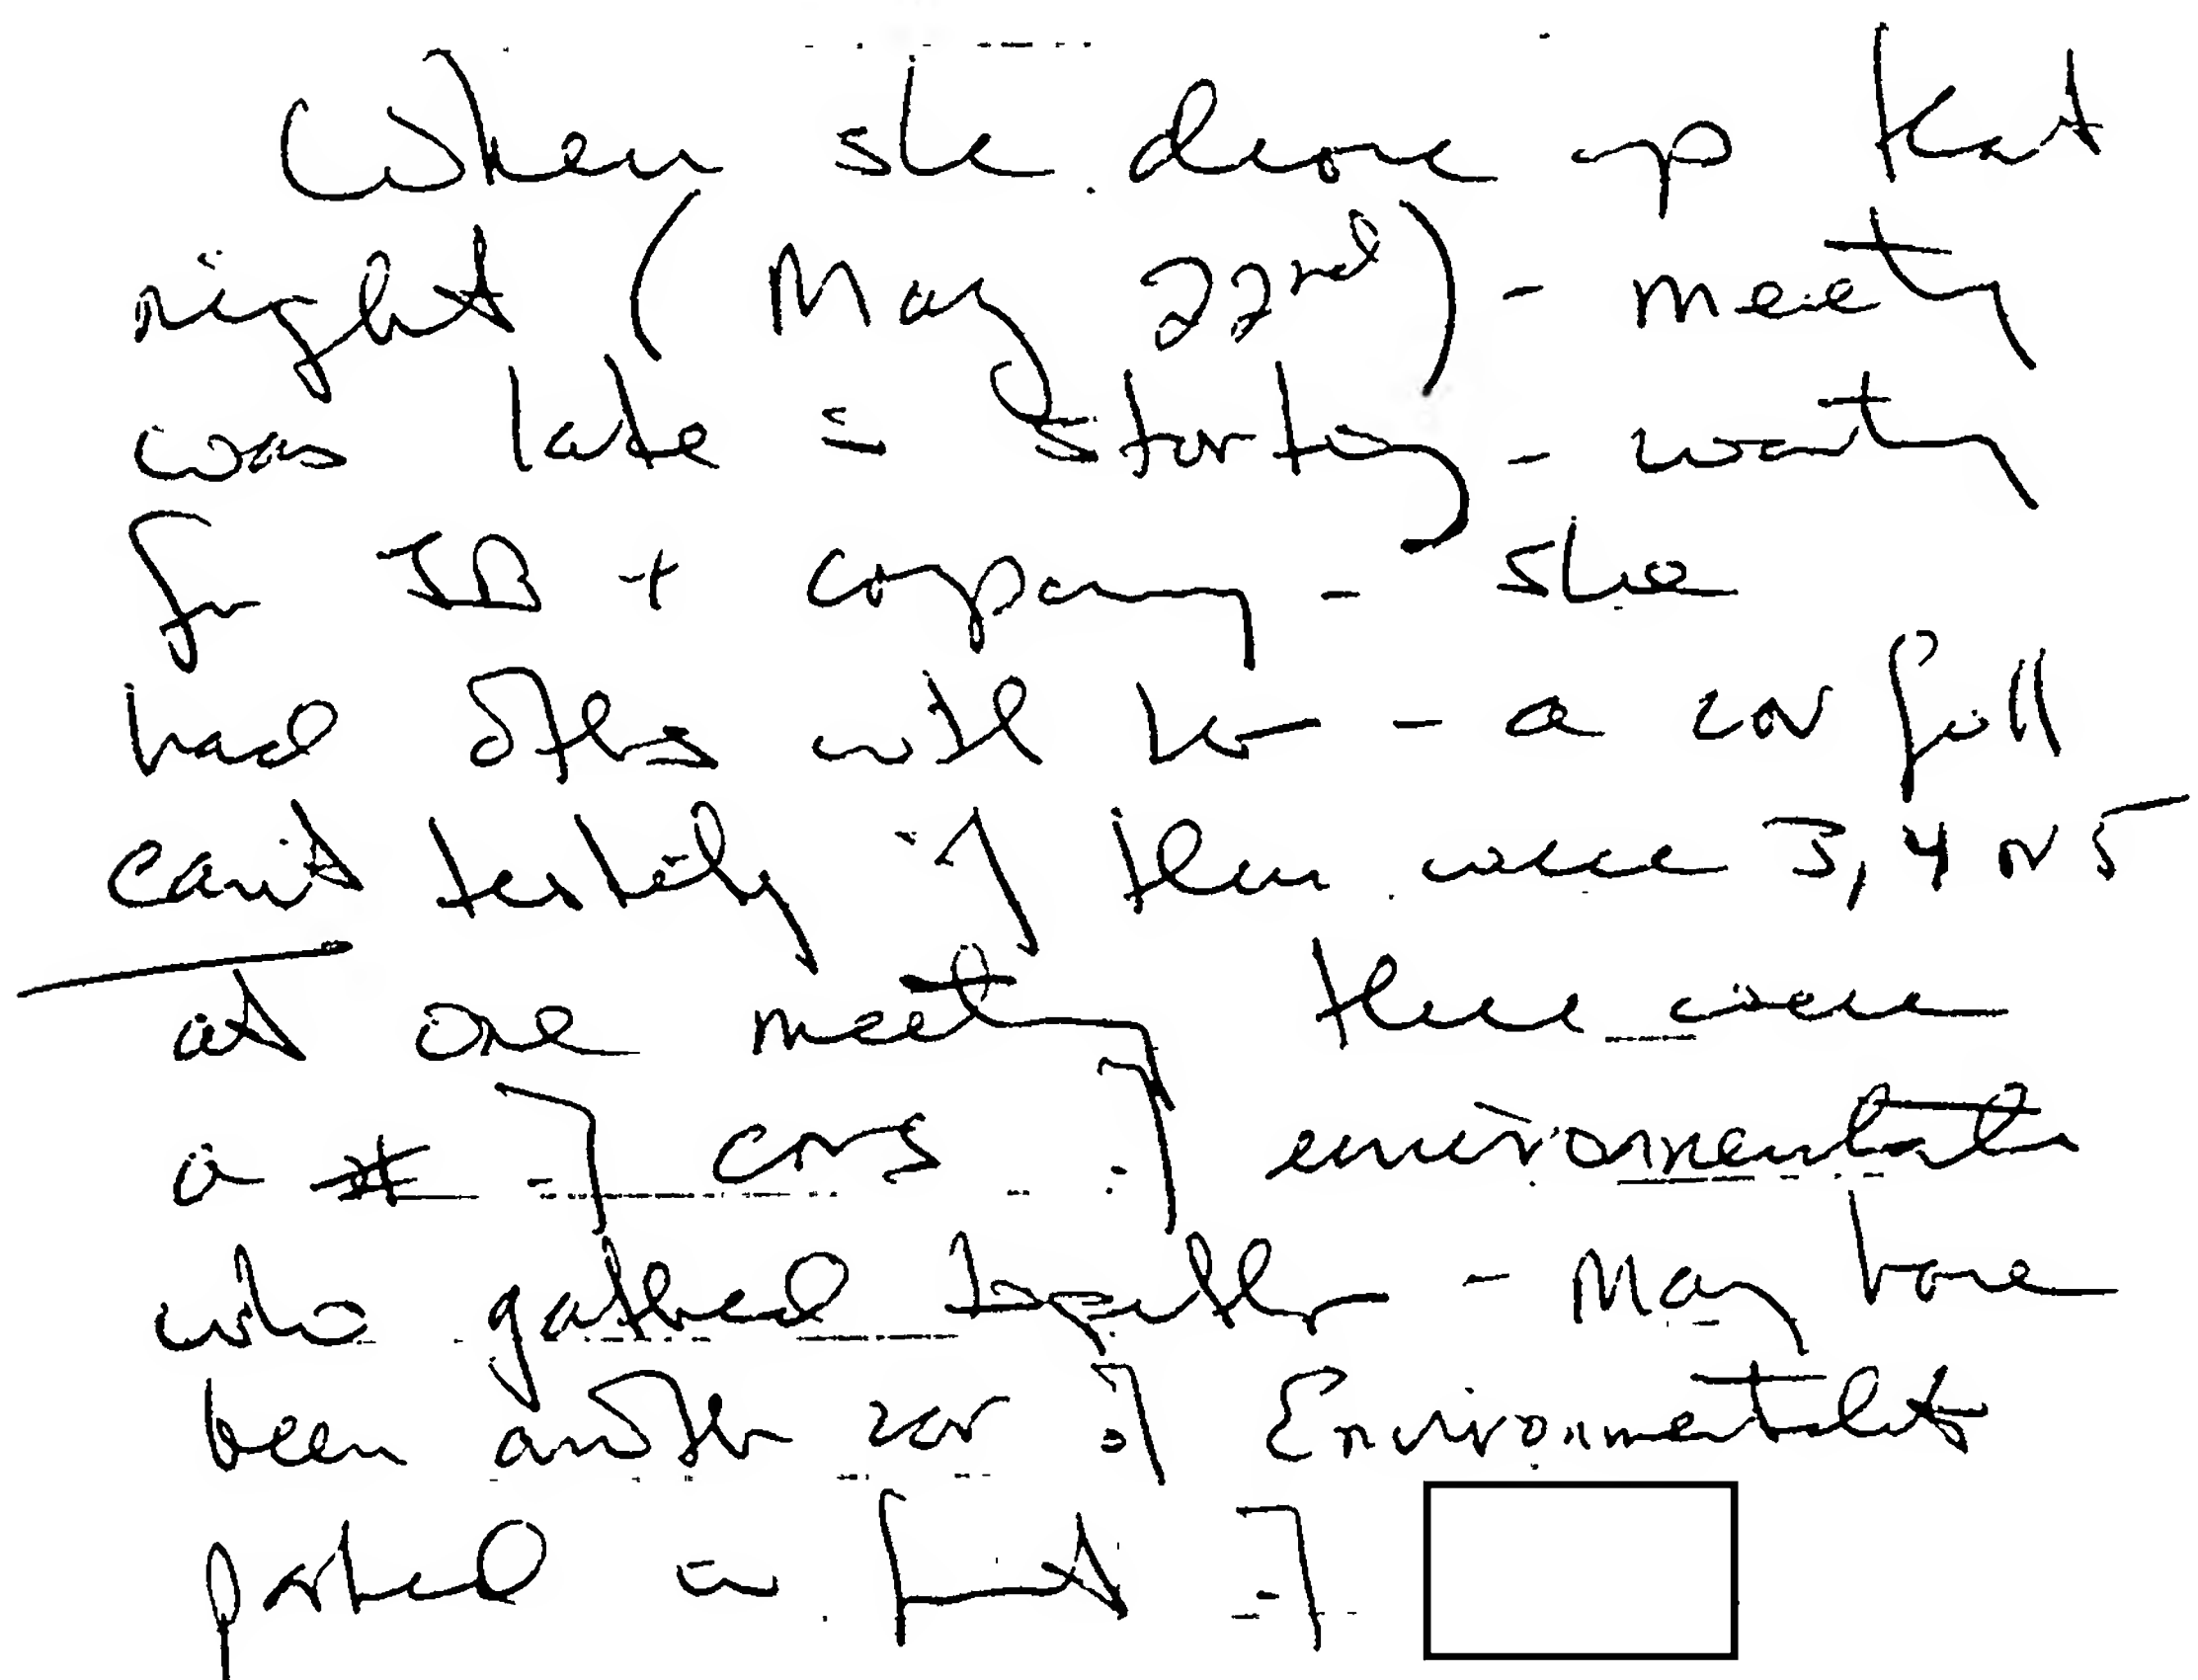 When she drove up that
night (May 22nd) - meeting
was late in starting - waiting
for JB + company - she
had others with her - a car full
can't testify if there were 3, 4 or 5
at one meeting there were
a # of cars of environmentalists
who gathered together - May have
been another car of Environmentalists
parked in front of